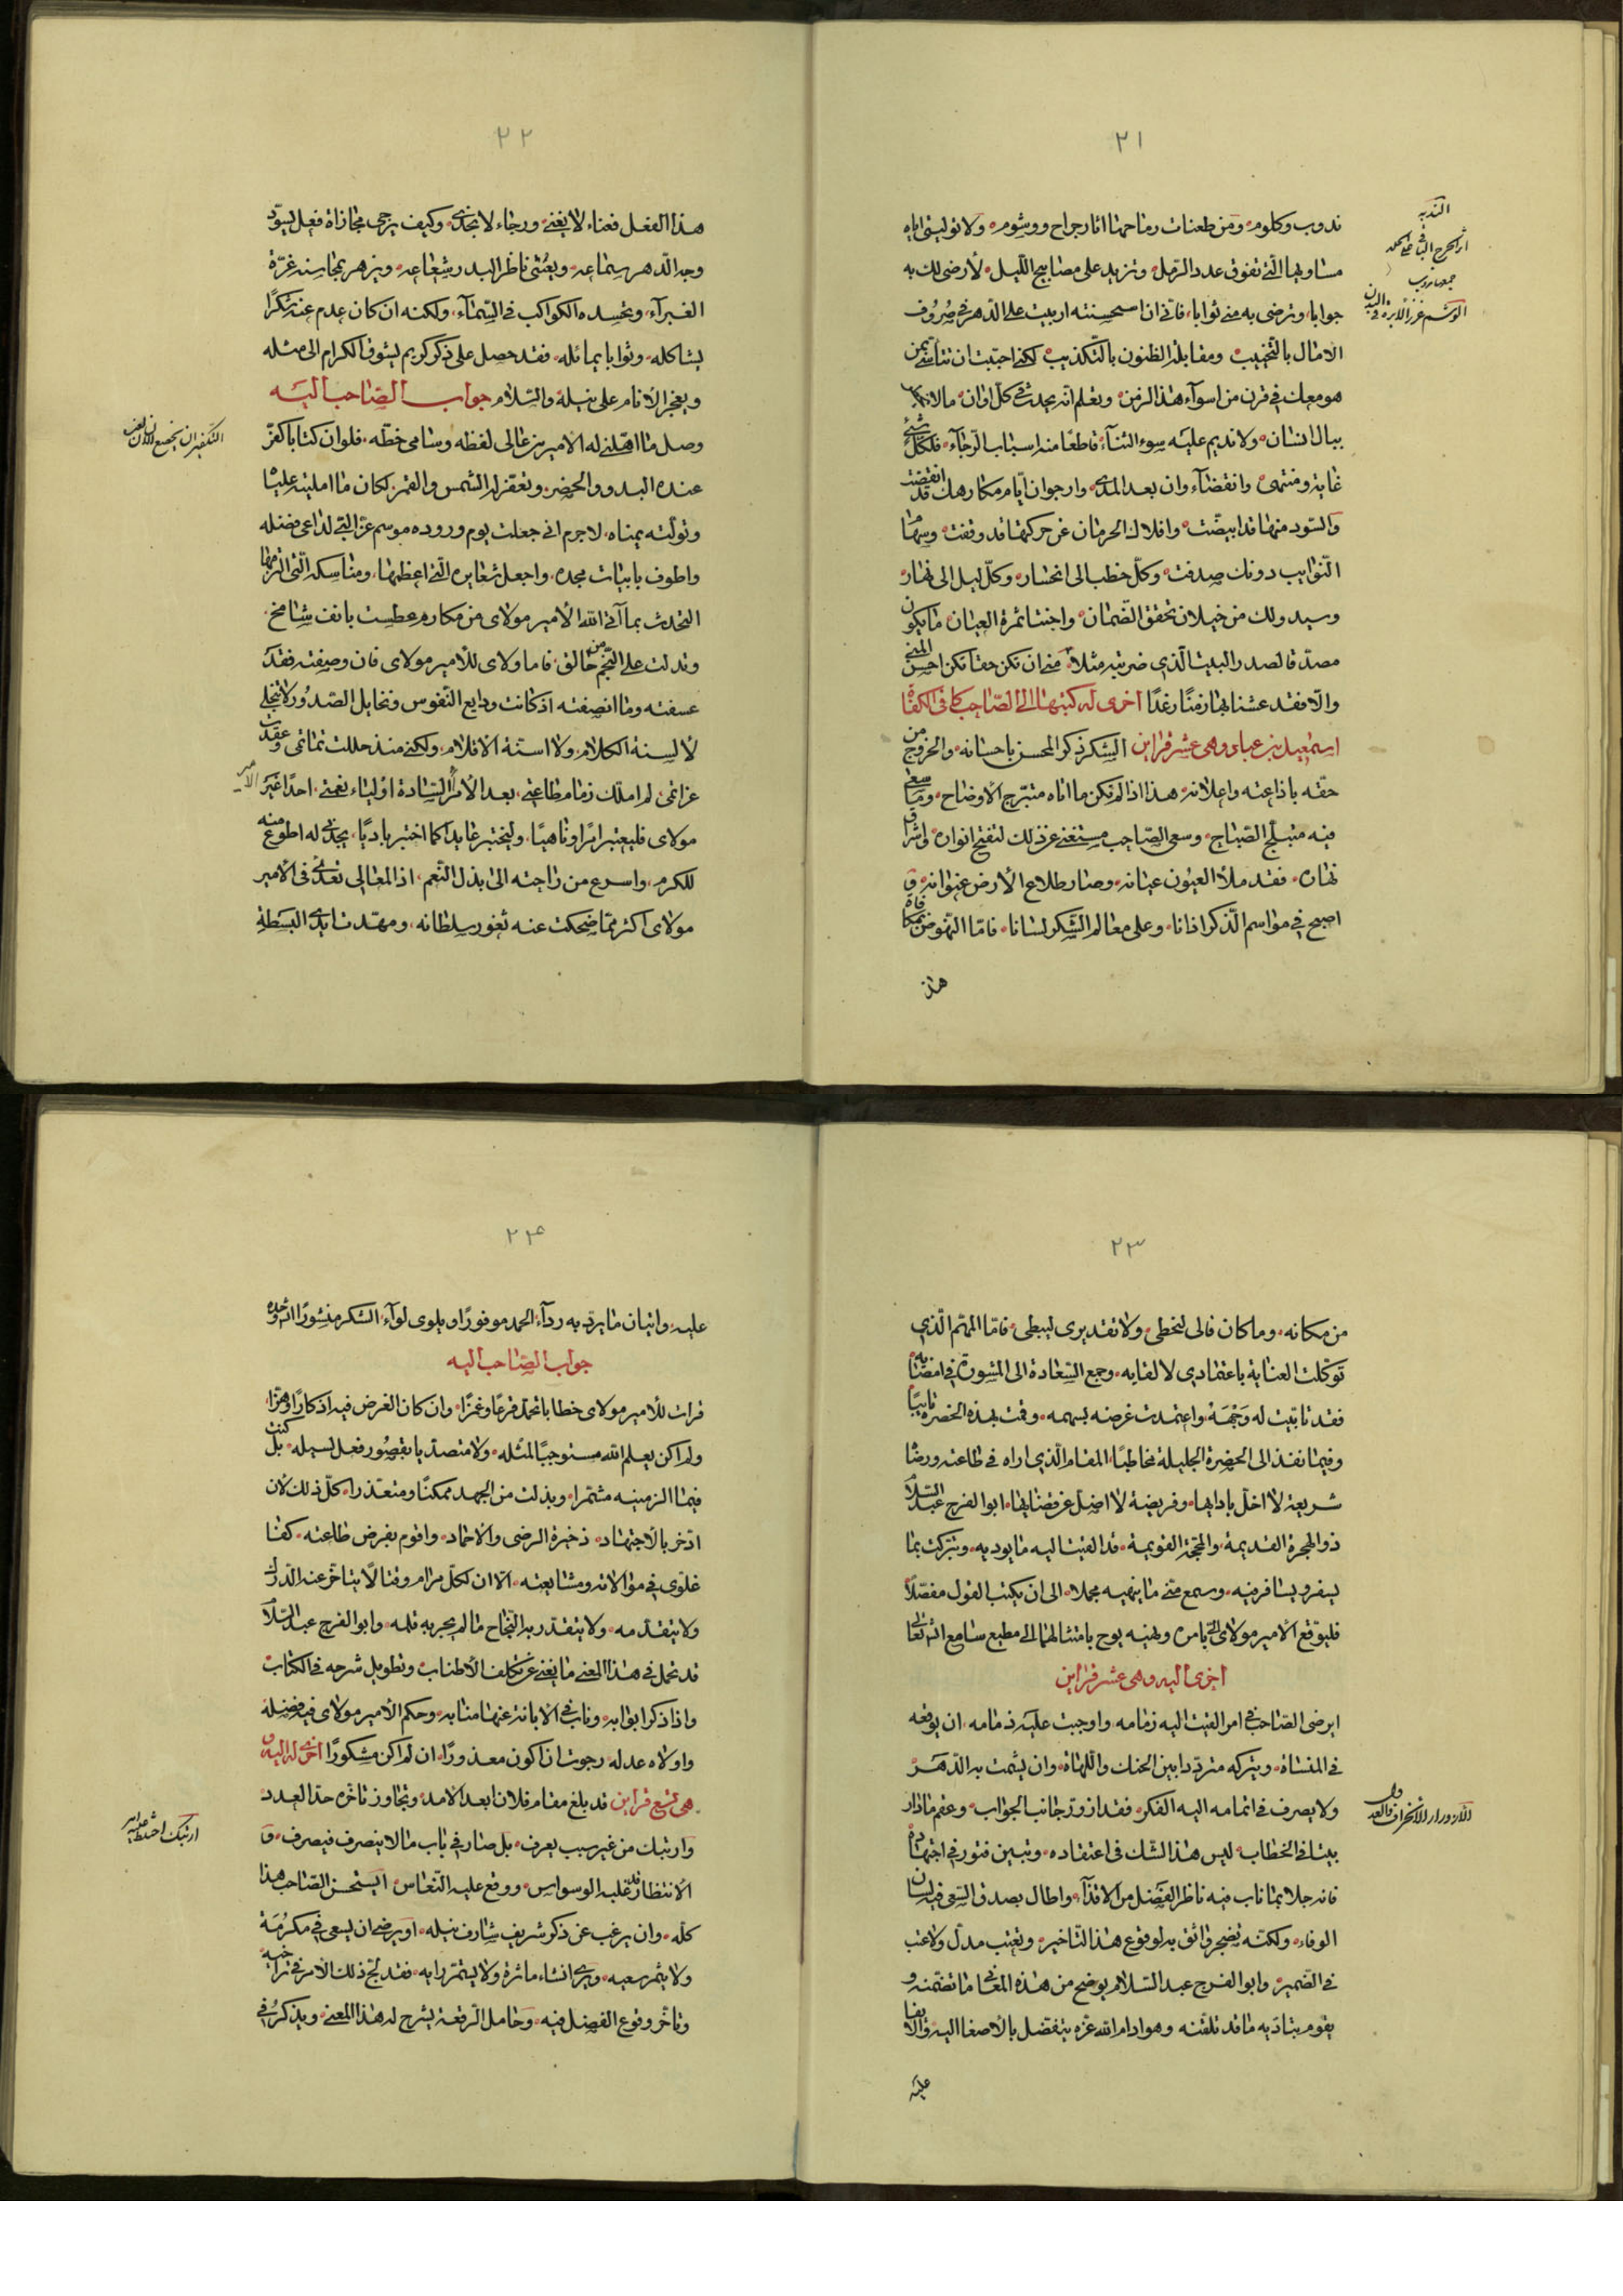 ٢١
ندوب وكلوم ومن طعنات رماحها اثار جراح ووشوم ولا توليني اياه
مساويها الّتي تفوق عدد الرّمل وتزيد على مصابيح اللّيل لأرضى لك به
جوابا وترضى به مني ثوابا فاني ان استحسنته اربيت على الدّهر في صروف
الامال بالتّخييب ومقابلة الظنون بالتّكذيب لكني احببت ان تتأسّى بمن
هو معك في قرن من اسوآء هذا الزمن وتعلم انّه يحدث في كلّ اوان ما لا
ببال انسان ولا نديم عليه سوء الثنآء قاطعًا منه اسباب الرّجآء فلكلّ شيء
غاية ومنتهى وانقضآء وان بعد المدى وارجو ان ايّام مكارهك قد انقضت
والسّود منها قد ابيضّت وافلاك الحرمان عن حركتها قد وقفت وسهام
النّوايب دونك صدفت وكلّ خطب الى انحسار وكلّ ليل الى نهار
وسيدو لك من خيلان تحقق الضّمان واجتنا ثمرة العيان ما يكون
مصدّقا لصدر البيت الّذي ضربته مثلا منى ان تكن حقا تكن احسن المنى
والّا فقد عشنا بها زمنًا رغدًا اخرى له كتبها الى الصّاحب كافي الكفاة
اسمعيل بن عباد وهي عشر قراين الشكر ذكر المحسن باحسانه والخروج من
حقّه باذاعته واعلانه هذا اذا لم تكن ما اتاه متبرّج الأوضاح ومساعي
فيه متبلّج الصّباح وسعى الصّاحب مستغنى عن ذلك لتفتح انواره واشراق
نهاره فقد ملأ العيون عيانه وصار طلاع الأرض عنوانه و
اصبح في مواسم الذّكر اذانا وعلى معالم الشّكر لسانا فامّا النّهوض بمكافاة
هذا
النّدبة
اثر الجرح الباقي على الجلد
جمعها ندوب
الوشم غرز الابرة في البدن
٢٢
هذا الفعل فعناء لا يغني ورجاء لا يجدي وكيف يرجى مجازاة فعل يسوّد
وجه الدّهر سماعه ويعشى ناظر البدر شعاعه ويزهر بمحاسنه غرّة
الغبرآء وتحسده الكواكب في السّمآء ولكنه ان كان عدم عنه شكرًا
يشاكله وثوابا يماثله فقد حصل على ذكر كريم يشوق الكرام الى مثله
ويفجر الأنام على نيله والسّلام جواب الصّاحب اليه
وصل ما اهّلني له الأمير من عالى لفظه وسامى خطّه فلو ان كتابا كفّر
عنده البدو والحضر وتعفّر له الشمس والقمر لكان ما امليته علينا
وتولّته يمناه لا جرم اني جعلت يوم وروده موسم عزّ البّى لداعى فضله
واطوف بابيات مجده واجعل شعايره الّتي اعظمها ومناسكه الّتي الزمها
التحدث بما آتى الله الأمير مولاى من مكارم عطست بانف شامخ
وتدلت على النّجم من حالق فاما ولاى للأمير مولاى فان وصفته فقد
عسفته وما انصفته اذ كانت ودايع النّفوس ونخايل الصّدور لا تتجلى
لألسنة الكلام ولا اسنّة الاقلام ولكني منذ حللت تمائمى وعقدت
عزائمى لم املّك زمام طاعتى بعد الأمرآء السّادة اوليآء نعمتى احدًا غير الأمير
مولاى فليعتبر امرًا وناهيًا وليختبر عايدًا كما اختبر باديًا يجدنى له اطوع منه
للكرم واسرع من راحته الى بذل النّعم اذ المعالى تغذى في الأمير
مولاى اكثر ممّا ضحكت عنه ثغور سلطانه ومهّدت ايدى البسطة
التكفير ان يخضع الانسان لغيره
٢٣
من مكانه وما كان فالى ليخطى ولا تقديرى ليبطى فامّا المهمّ الّذي
توكّلت العناية باعتمادي لا لقايه وجمع السّعادة الى المشورة في امضائه
فقد تابّيت له وجهة واعتمدت غرضه بسهمه وقمت بهذه الحضرة نايبًا
وفيما نفذ الى الحضرة الجليلة مخاطبًا المقام الّذي اراه في طاعته ورضا
شريعة لا اخلّ بادابها وفريضة لا اضلّ عن قضايها ابو الفرج عبد السّلام
ذو الهجرة القديمة والمحجّة القويمة قد القيت اليه ما يوديه وتبرّكت بما
يسفر ويسافر فيه وسمع منّى ما ينهيه مجملا الى ان يكتب القول مفصّلا
فليوقع الأمير مولاى الىّ بامره ونهيه يوح بامتثالهما الى مطيع سامع انشآء الله تعالى
اخرى اليه وهى عشر قراين
ايرضى الصّاحب في امر القيت اليه زمامه واوجبت عليه ذمامه ان يوقعه
في المنساة ويتركه متردّدا بين الحنك واللّهاة وان يشمت به الدّهر
ولا يصرف في اتمامه اليه الفكر فقد ازورّ جانب الجواب وعفم ما دار
بيننا في الخطاب ليس هذا الشّك في اعتقاده وتبين فتور في اجتهاده
فانه جلا بما ناب فيه ناظر الفضل من الاقذآء واطال بصدق السّعى فيه لسان
الوفاء ولكنّه تضجر واثق به لوقوع هذا التّاخير وتعتب مدلّ ولا عتب
في الضّمير وابو الفرج عبد السّلام يوضح من هذه المعانى ما تضمّنه و
يقوم بتأديه ما قد تلقّنه وهو ادام الله عزّه يتفضّل بالأصغا اليه والايفا
عليه
الازورار الانحراف والعدول
٢٤
عليه واتيان ما يرتدى به ردآء الحمد موفورًا ويلوى لوآء الشكر منشورًا انشآء الله وحده
جواب الصّاحب اليه
قرات للأمير مولاى خطابا تحمّل قرعًا وغمزًا وان كان الغرض فيه اذكارًا وهزّا
ولم اكن يعلم الله مستوجبًا لمثله ولا متصدّيا بقصور فعل لسيله بل كنت
فيما الزمنيه مشمّرا وبذلت من الجهد ممكنًا ومتعذّرا كلّ ذلك لأن
ادّخر بالاجتهاد ذخيرة الرضى والاحماد واقوم بفرض طاعته كفا
غلوّى في موالاته ومشايعته الّا ان لكلّ مرام وقتا لا يتاخّر عنه الدّرك
ولا يتقدّمه ولا يتقدّر به النّجاح ما لم يجر به قلمه وابو الفرج عبد السّلام
قد تحمل في هذا المعنى ما يغنى عن تكلف الأطناب وتطويل شرحه في الكتاب
واذا ذكر ابوابه وناب في الابانة عنها منابه وحكم الأمير مولاى فيه فضله
واولاه عدله رجوت ان اكون معذورًا ان لم اكن مشكورًا اخرى له اليه و
هى تسع قراين قد بلغ مقام فلان ابعد الأمد وتجاوز تاخّره حدّ العدد
وارتبك من غير سبب يعرف بل صار في باب ما لا ينصرف فيصرف و
الأنتظار قد غلبه الوسواس ووقع عليه النّعاس ايستحسن الصّاحب هذا
كلّه وان يرغب عن ذكر شريف شارف نيله او يرضى ان يسعى في مكرمة
ولا يثمر سعيه ويرى انشاء ماثرة ولا يستمرّ رايه فقد لجّ ذلك الأمر في تراخيه
وتاخّر وقوع الفصل فيه وحامل الرّقعة يشرح له هذا المعنى ويذكر في
ارتبك اختلط عليه امره